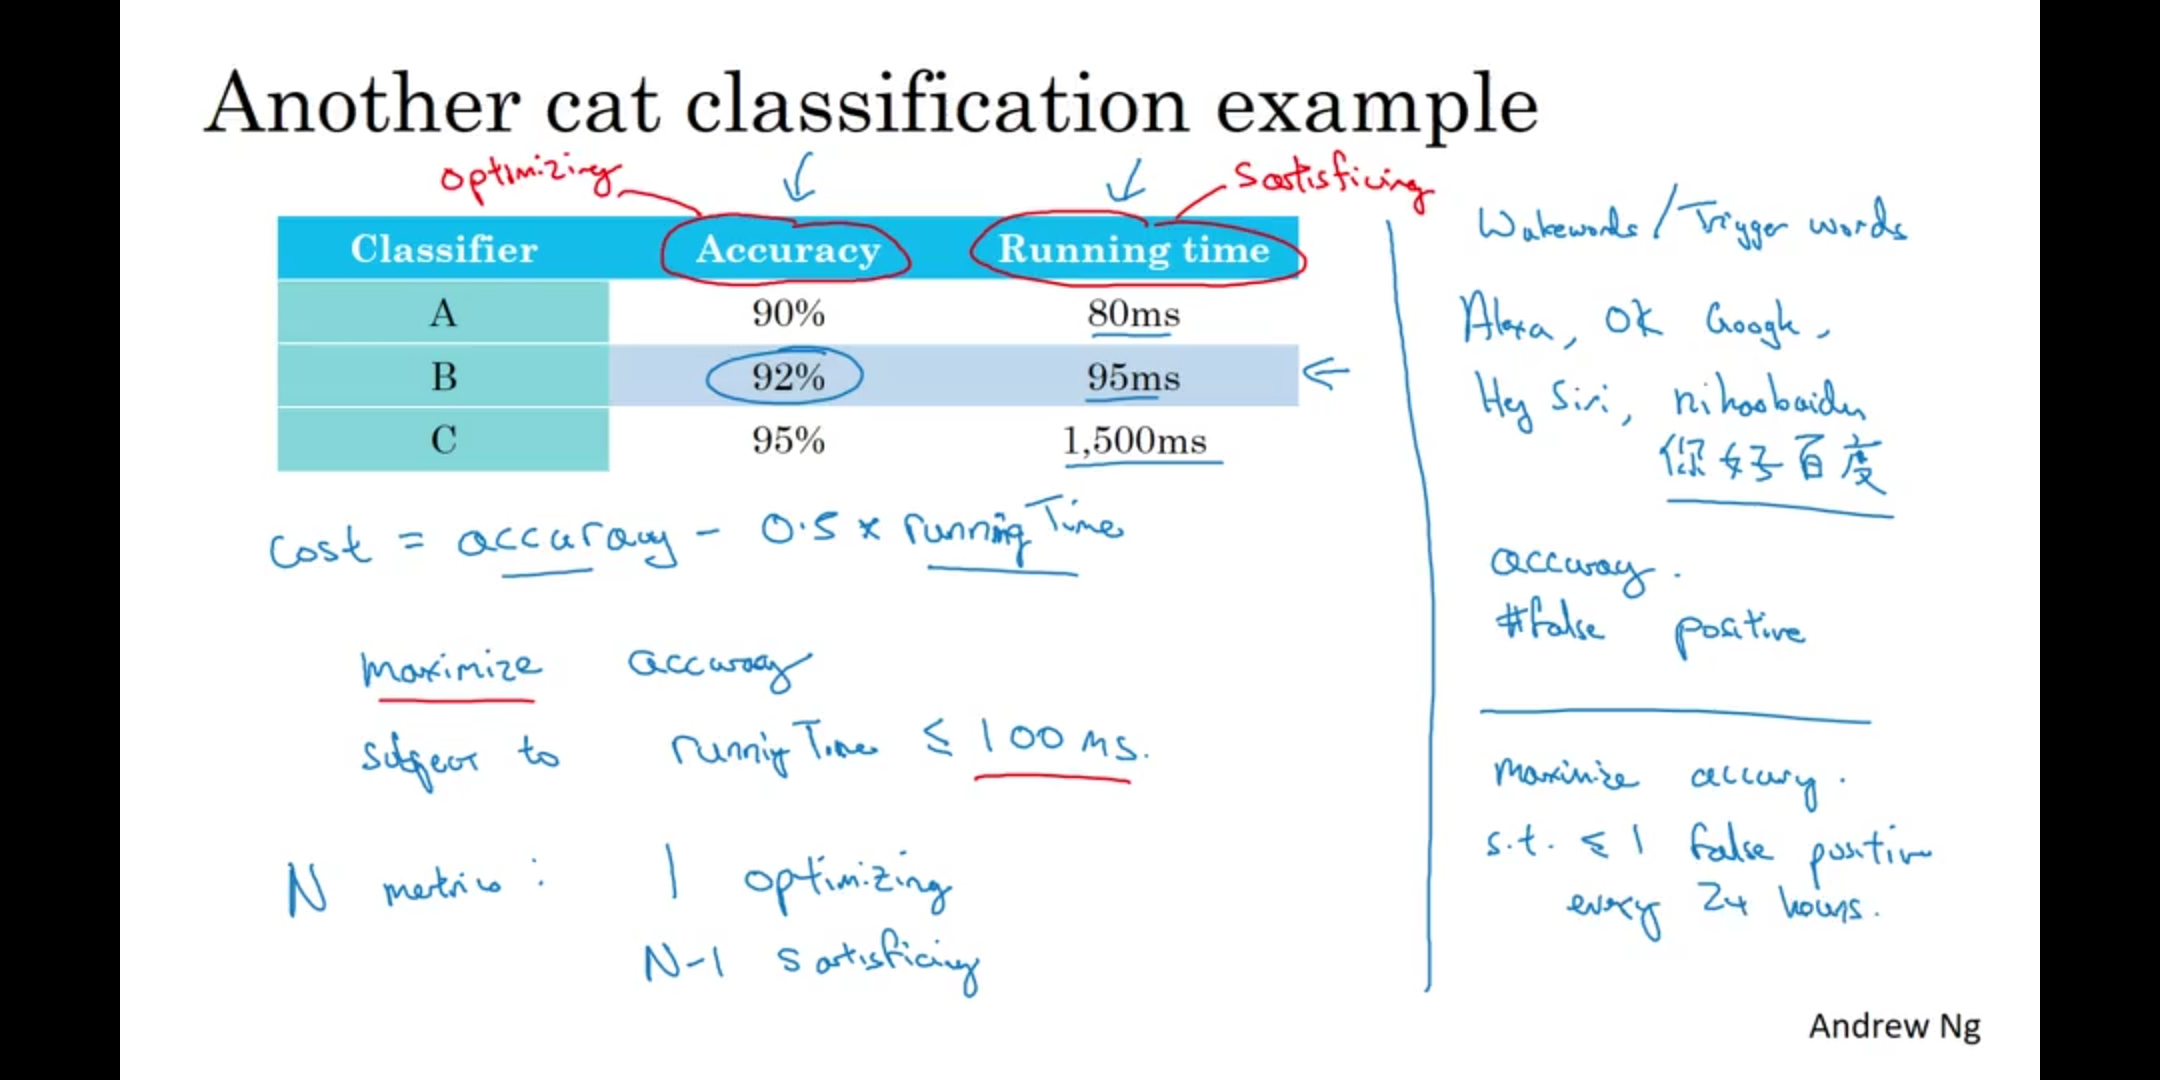 Another cat classification example
optimizing
Satisficing
Classifier Accuracy Running time
A 90% 80ms
B 92% 95ms
C 95% 1,500ms
cost = accuracy - 0.5 x running Time
maximize accuracy
subject to running Time ≤ 100 ms.
N metrics: 1 optimizing
N-1 satisficing
Wakewords / Trigger words
Alexa, OK Google,
Hey Siri, nihaobaidu
你好百度
accuracy.
#false positive
maximize accuracy.
s.t. ≤ 1 false positive
every 24 hours.
Andrew Ng